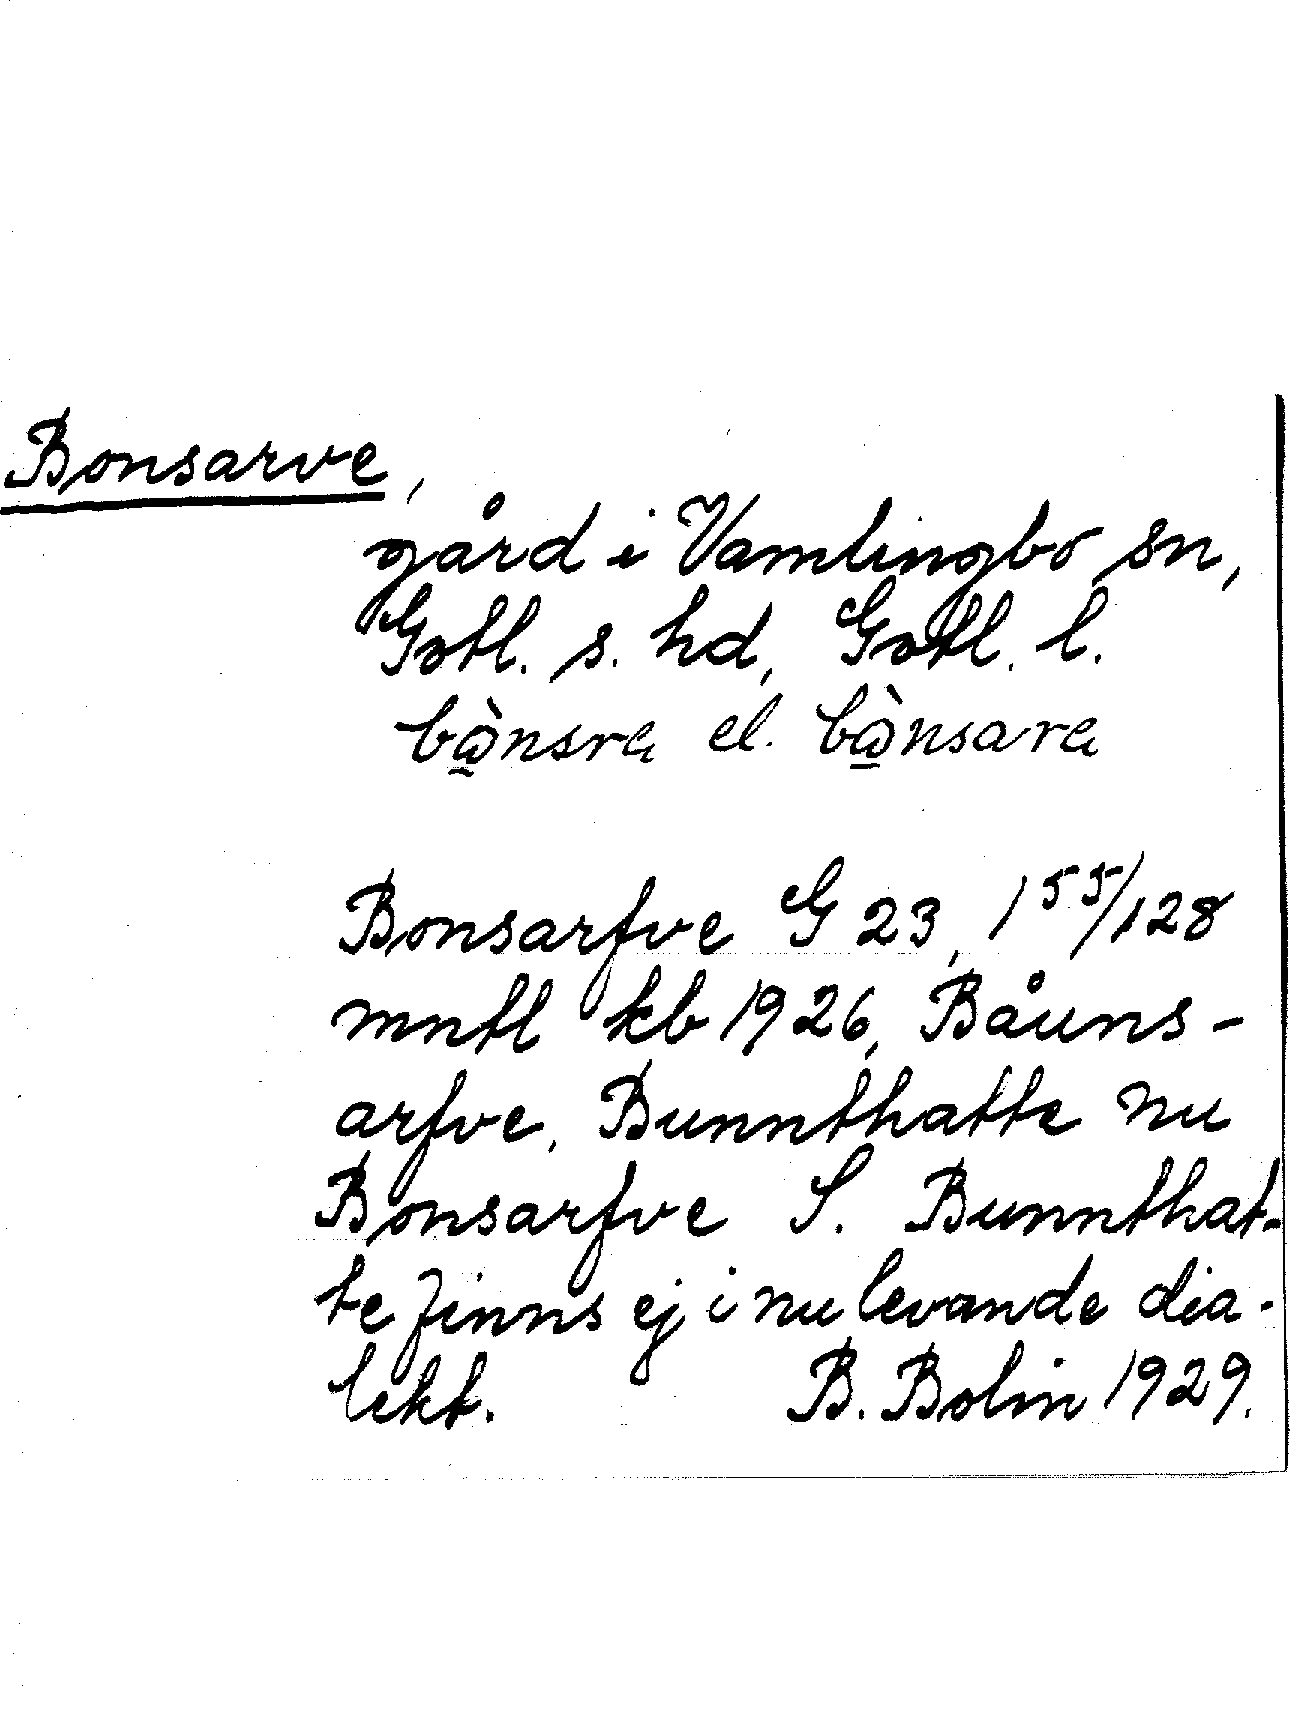 Bonsarve,
gård i Vamlingbo sn,
Gotl. s. hd, Gotl. l.
bὼ̲nsra el. bὼ̲nsara
Bonsarfve G 23, 1 55/128
mntl kb 1926, Båuns-
arfve, Bunnthatte nu
Bonsarfve S. Bunnthat-
te finns ej i nu levande dia-
lekt. B. Bolin 1929.